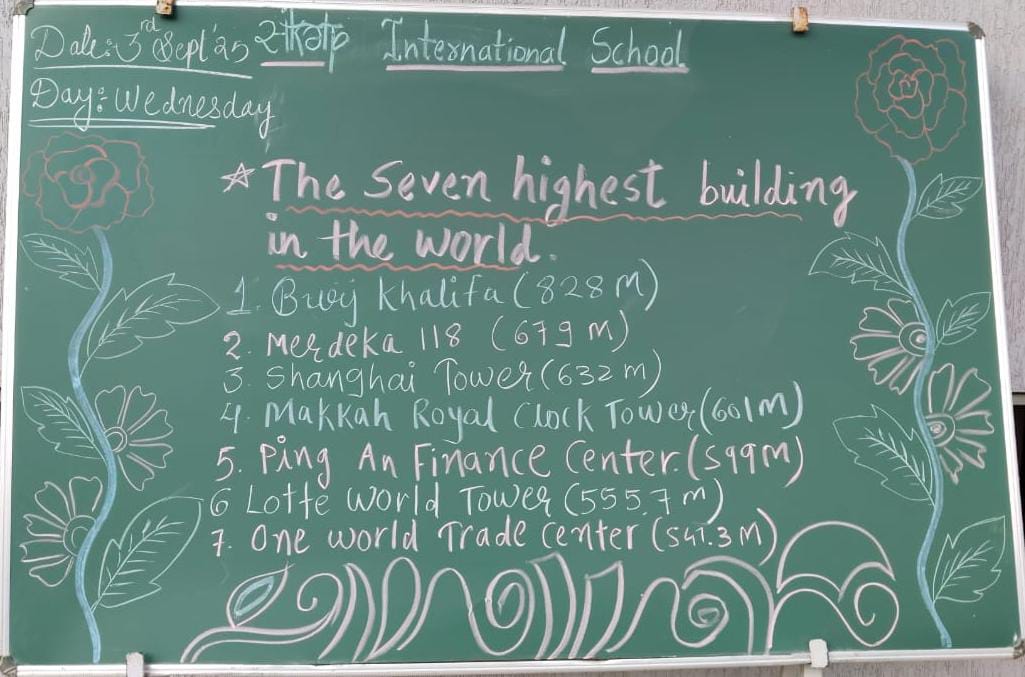 Date: 3rd Sept'25 International School
Day: Wednesday
☆ The Seven highest building
in the world.
1. Burj Khalifa (828 M)
2. Merdeka 118 (679 M)
3. Shanghai Tower (632 m)
4. Makkah Royal Clock Tower (601M)
5. Ping An Finance Center. (599M)
6 Lotte World Tower (555.7 m)
7. One world Trade center (541.3 M)